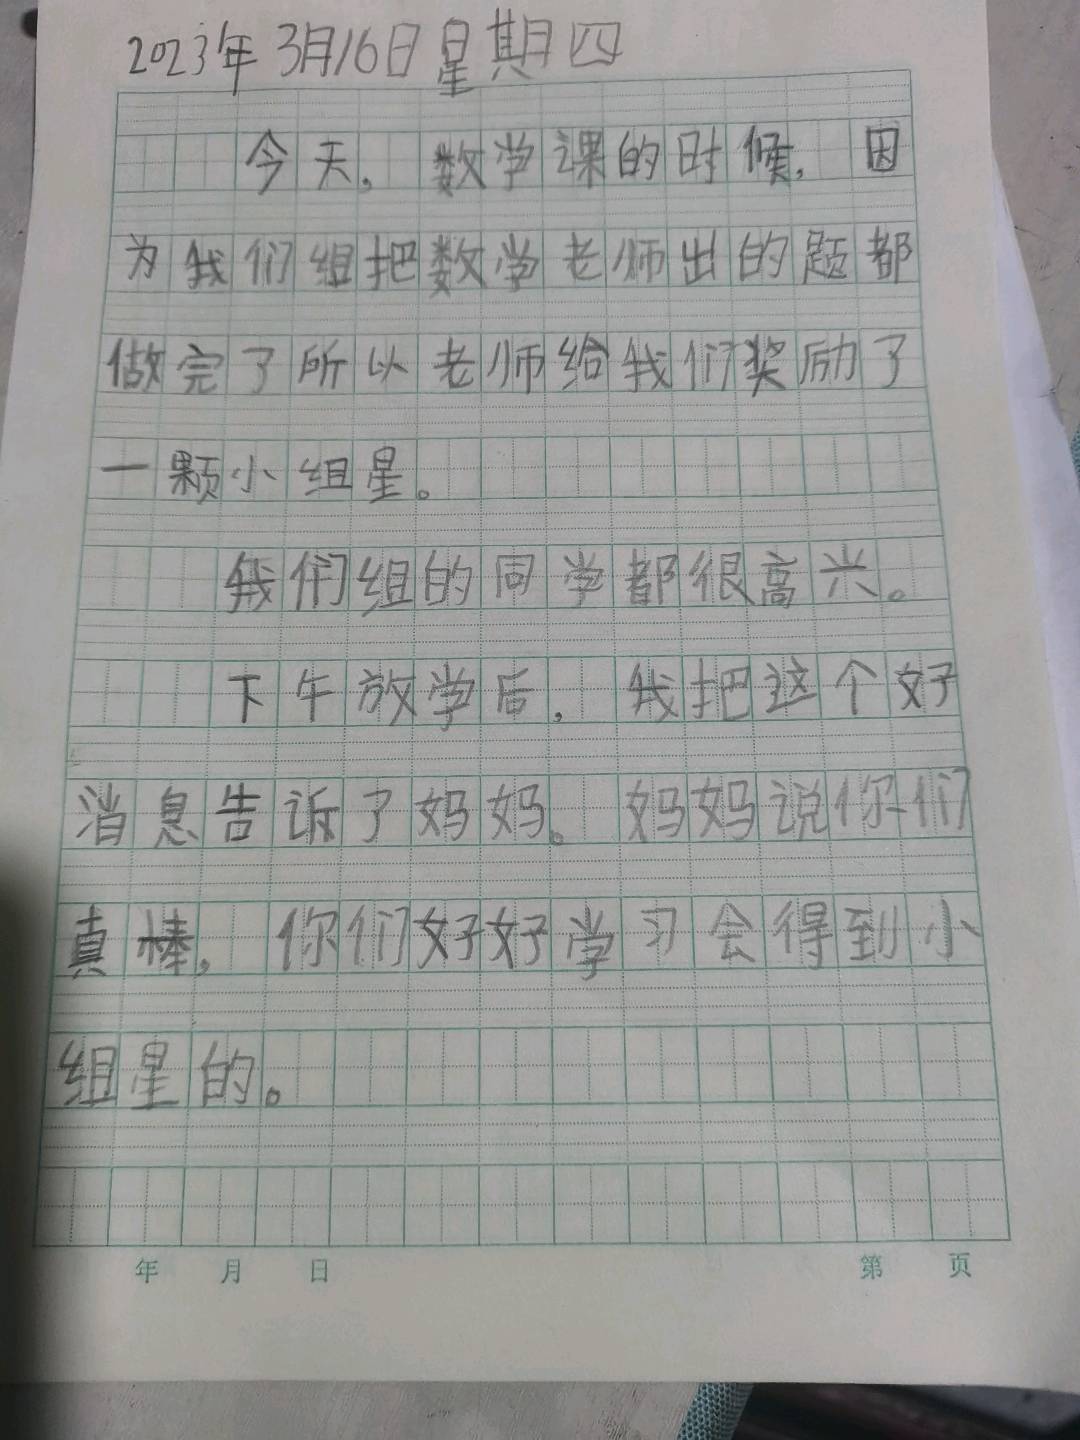 2023年3月16日星期四
今天，数学课的时候，因
为我们组把数学老师出的题都
做完了所以老师给我们奖励了
一颗小组星。
我们组的同学都很高兴。
下午放学后，我把这个好
消息告诉了妈妈。妈妈说你们
真棒，你们好好学习会得到小
组星的。
年 月 日 第 页